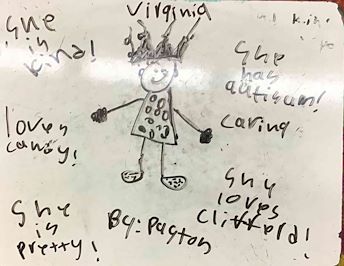 Virginia
She
is
kind!
She
has
autisum!
loves
candy!
caring
She
is
pretty!
She
loves
clifford!
By: Payton